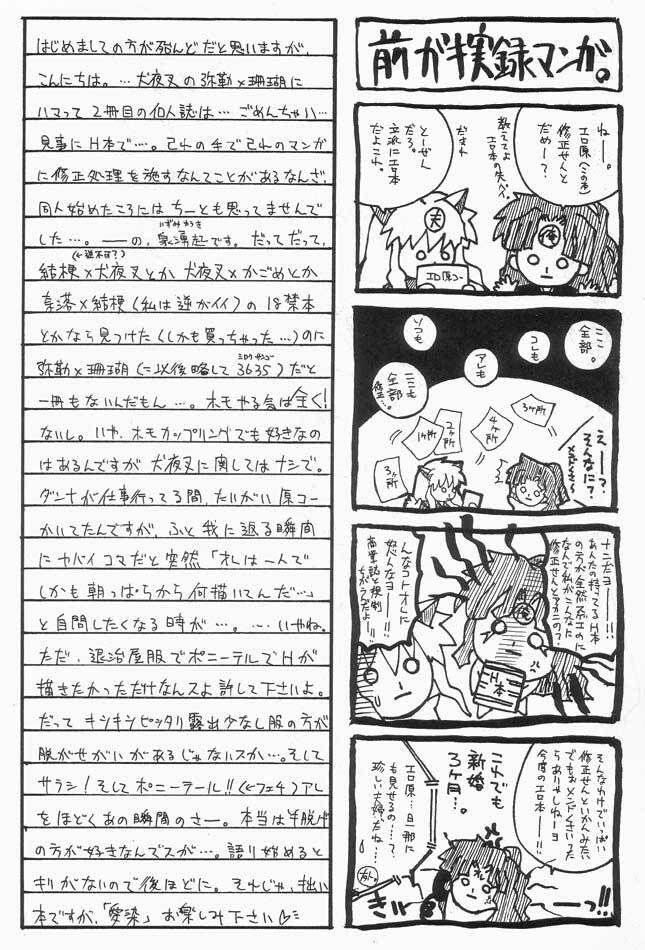 前がき実録マンガ。
ねー。
エロ原(この本)
修正せんと
だめー?
教えてよ
エロ本の先パイ。
だまれ
とーぜん
だろ。
立派にエロ本
だよこれ。
夫
俺
エロ原コー
ここ
全部。
コレも
アレも
ソコも
ここも
全部…
修正…
3ヶ所
4ヶ所
2ヶ所
1ヶ所
3ヶ所
えーっ?
そんなに?
ナニだョー!!!
あんたの持ってるH本
の方が全然スゴエのに
なんで私がこんなに
修正せんとアカンの?
んなコトオレに
怒んなヨー
商業誌と規制
ちがうんだよー!!
俺
H本
そんなわけでいっぱい
修正せんといかんみたい
でもぉメンドくさいった
らありゃしねーヨ
今度のエロ本ーー!!
これでも
新婚
3ヶ月…。
エロ原…旦那に
も見せるの……?
珍しい夫婦だね…
友人。
きいーっ!!
はじめましての方が殆んどだと思いますが、
こんにちは。…犬夜叉の弥勒×珊瑚に
ハマって2冊目の個人誌は…ごめんちゃい…
見事にH本で…。己れの手で己れのマンガ
に修正処理を施すなんてことがあるなんざ、
同人始めたころにはちーとも思ってませんで
した…。ーーの、泉湧起です。だってだって、
いずみわうき
(←逆不可?)
桔梗×犬夜叉とか 犬夜叉×かごめとか
奈落×桔梗(私は逆がイイ)の18禁本
とかなら見つけた(しかも買っちゃった…)のに
ミロクサンゴ
弥勒×珊瑚(に以後略して3635)だと
一冊もないんだもん…。ホモやる気は全く!
ないし。いや、ホモカップリングでも好きなの
はあるんですが犬夜叉に関してはナシで。
ダンナが仕事行ってる間、たいがい原コー
かいてたんですが、ふと我に返る瞬間
にヤバイコマだと突然「オレは一人で
しかも朝っぱらから何描いてんだ…」
と自問したくなる時が…。…いやね。
ただ、退治屋服でポニーテルでHが
描きたかっただけなんスよ許して下さいよ。
だって キシキシピッタリ露出少なし服の方が
脱がせがいがあるじゃないスか…。そして
サラシ!そしてポニーテール!!(←フェチ)アレ
をほどくあの瞬間のさー。本当は半脱げ
の方が好きなんでスが…。語り始めると
キリがないので後ほどに。それじゃ、拙い
本ですが、「愛染」お楽しみ下さい